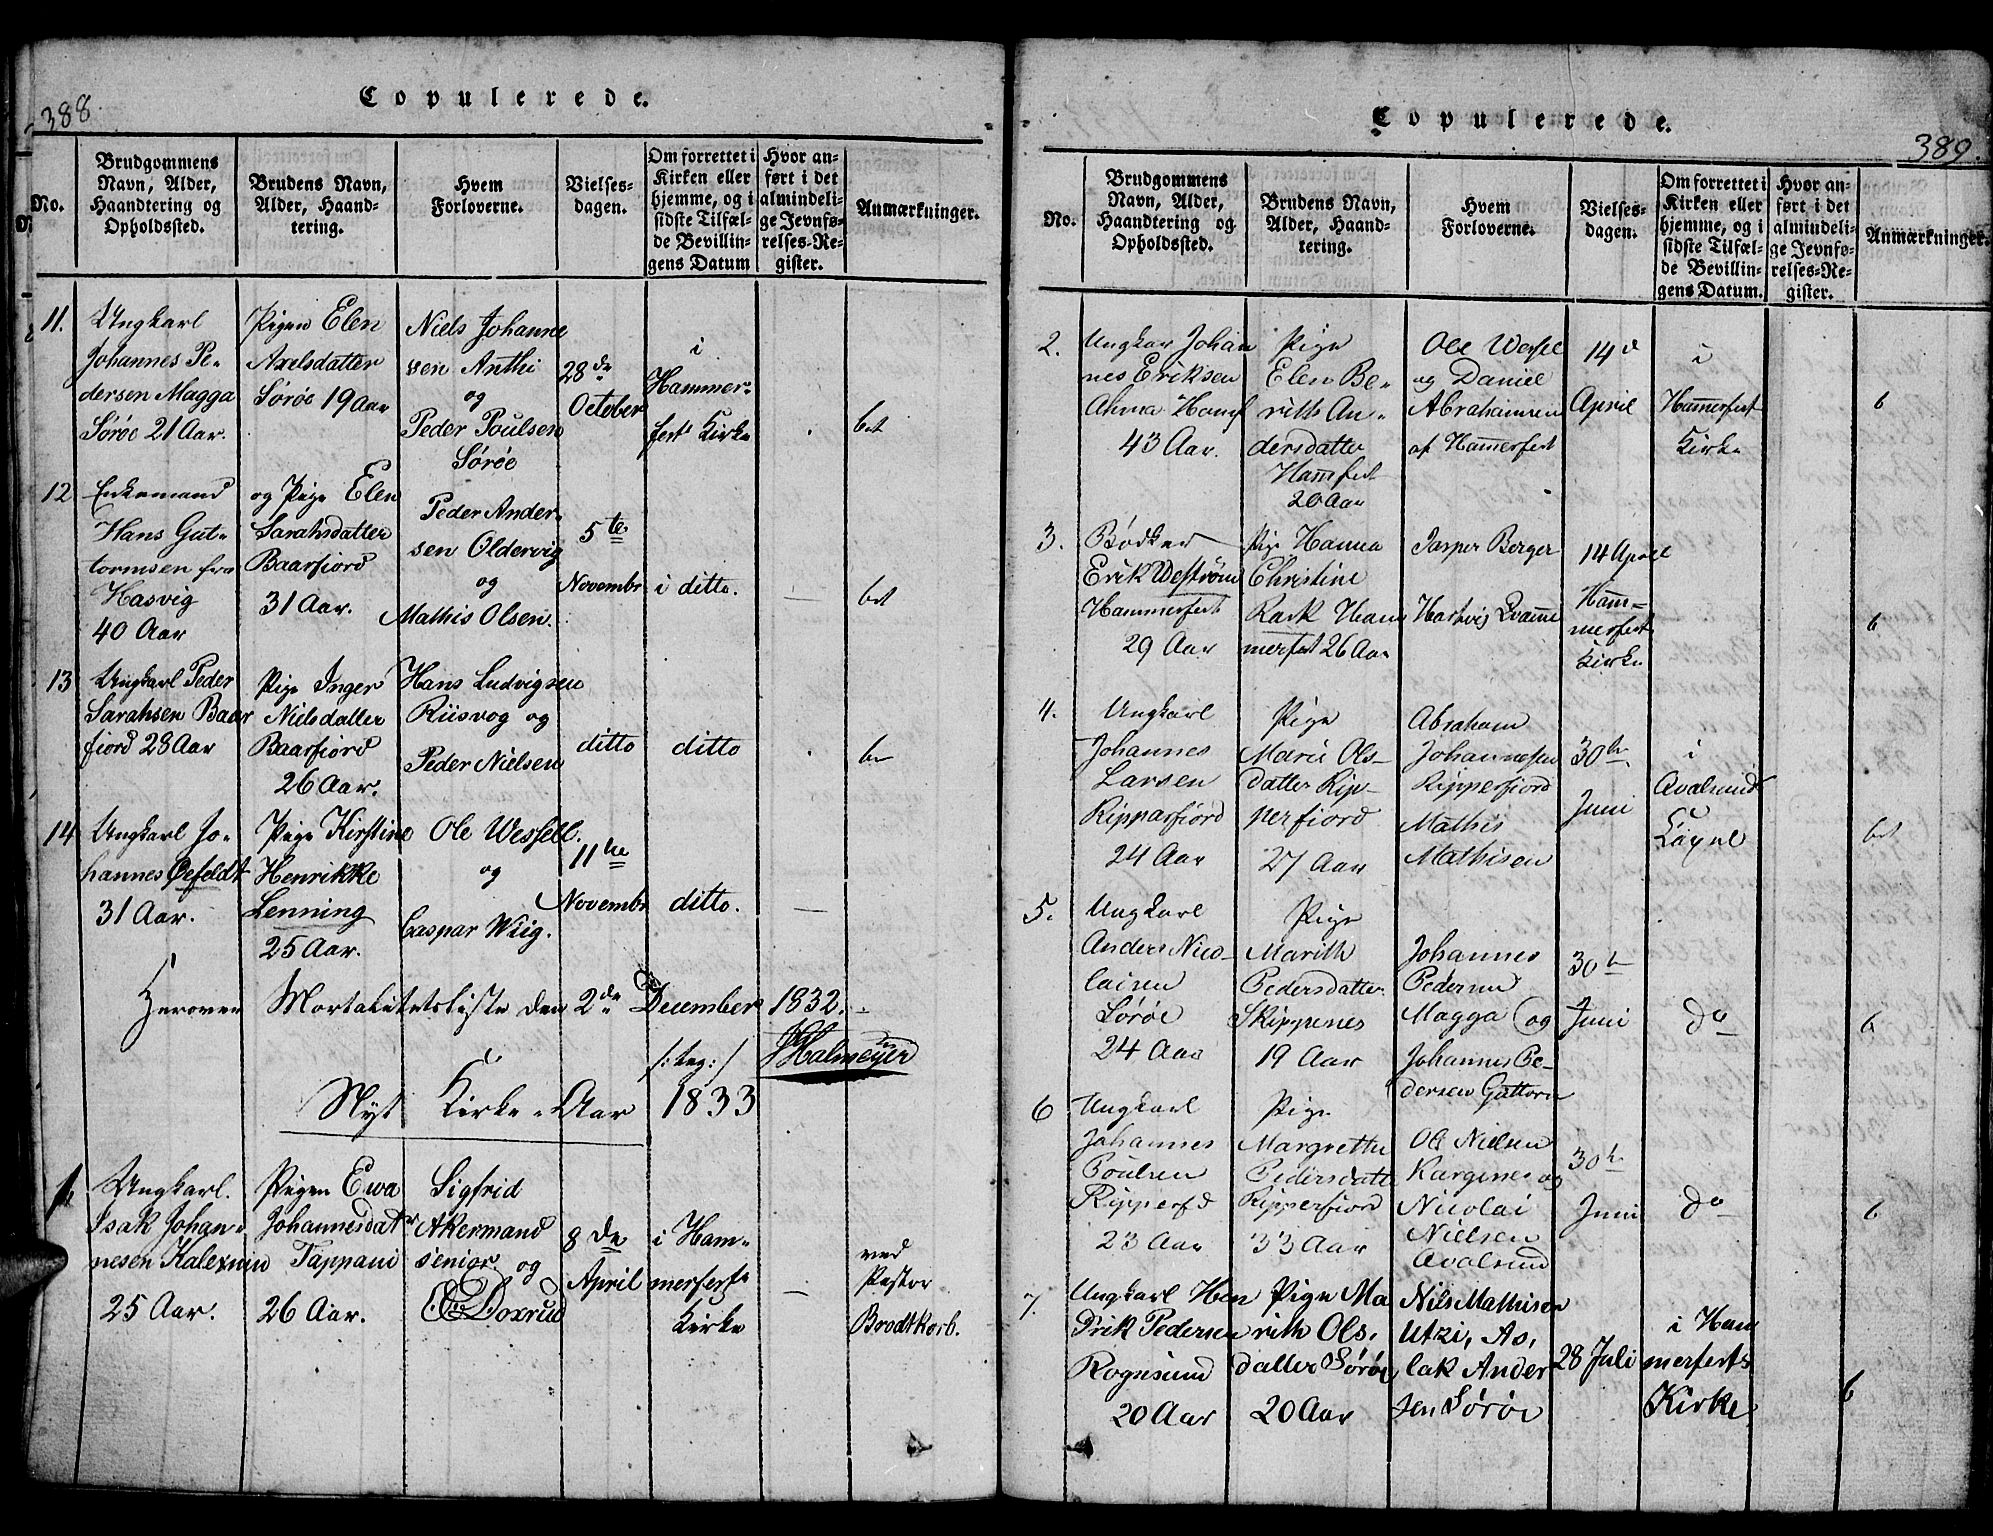 388.
Copulerede.
No.
Brudgommens
Navn, Alder,
Haandtering og
Opholdssted.
Brudens Navn,
Alder, Haand-
tering.
Hvem
Forloverne.
Vielses-
dagen.
Om forrettet i
Kirken eller
hjemme, og i
sidste Tilfæl-
de Bevillin-
gens Datum
Hvor an-
ført i det
almindeli-
ge Jevnfø-
relses-Re-
gister.
Anmærkninger.
11.
Ungkarl
Johannes Pe-
dersen Magga
Söröe 21 Aar.
Pigen Elen
Axelsdatter
Söröe 19 Aar
Niels Johanne
sen Anthi
og
Peder Poulsen
Söröe
28de
October
i
Hammer-
fest Kirke
.
bet
12
Enkemand
Hans Gut-
tormsen fra
Hasvig
40 Aar
og Pige Elen
Sarahsdatter
Baarfiord
31 Aar.
Peder Ander-
sen Oldervig
og
Mathis Olsen.
5te
Novembr
i ditto.
—
bet
13
Ungkarl Peder
Sarahsen Baar
fiord 28 Aar
Pige Inger
Nielsdatter
Baarfiord
26 Aar.
Hans Ludvigsen
Riisvog og
Peder Nielsen
ditto
ditto
.
be
14
Ungkarl Jo-
hannes Oefeldt
31 Aar.
Pige Kirstine
Henrikke
Lenning
25 Aar.
Ole Wessell.
og
Caspar Wiig.
11te
Novembr
ditto.
—
Mortalitetsliste den 2de December 1832.
/:teg:/ Halmeyer
Nyt Kirke-Aar 1833
1
Ungkarl.
Isak Johan-
nesen Kalexnin
25 Aar.
Pigen Ewa
Johannesdatr
Tappani
26 Aar.
Sigfrid
Akermand
senior og
Doxrud
8de
April
i Ham-
merfest
Kirke
—
ved
Pastor
Brodtkorb.
Copulerede.
389.
No.
Brudgommens
Navn, Alder,
Haandtering og
Opholdssted.
Brudens Navn,
Alder, Haand-
tering.
Hvem
Forloverne.
Vielses-
dagen.
Om forrettet i
Kirken eller
hjemme, og i
sidste Tilfæl-
de Bevillin-
gens Datum.
Hvor an-
ført i det
almindeli-
ge Jevnfø-
relses-Re-
gister.
Anmærkninger.
2.
Ungkar Johan
nes Eriksen
Ahma Hamf
43 Aar.
Pige
Elen Be-
rith An-
dersdatter
Hamfest
20 Aar
Ole Wessel
og Daniel
Abrahamsen
af Hamerfest
14d
April
i
Hamerfest
Kirke
b
3.
Bödker
Erik Weström
Hammerfest
29 Aar
Pige Hanna
Christine
Rask Ham
merfest 26 Aar
Jasper Berger
Hartvig Qvanne
14 April
Ham-
merfest
Kirke
b
4.
Ungkarl
Johannes
Larsen
Ripparfiord
24 Aar
Pige
Marie Ols-
datter Rip-
perfiord
27 Aar
Abraham
Johannesen
Ripperfiord
Mathis
Mathisen
30te
Juni
i
Qvalsund
Capel
bet
5.
Ungkarl
Anders Nico-
laisen
Söröe
24 Aar
Pige
Marith
Pedersdatter
Skippenes
19 Aar
Johannes
Pedersen
Magga og
Johannes Pe-
dersen Guttorm
30te
Juni
do
b
6
Ungkarl
Johannes
Poulsen
Ripperfd
23 Aar
Pige
Margrethe
Pedersdatt
Ripperfiord
33 Aar
Ole Nielsen
Kargenes og
Nicolai
Nielsen
Qvalsund
30te
Juni
do
b
7.
Ungkarl Hen
drik Pedersen
Rognsund
20 Aar
Pige Ma
rith Ols.
datter Söröe
20 Aar
Nils Mathisen
Utzi, As,
lak Ander
sen Söröe
28 Juli
i Ham
merfests
Kirke
b